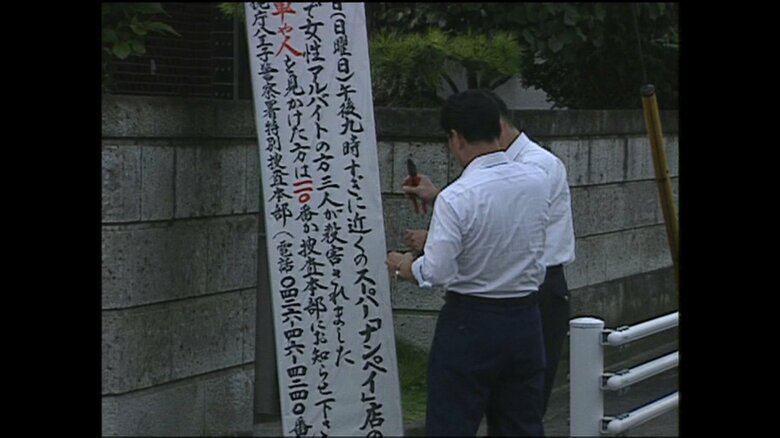 日(日曜日)午後九時すぎに近くのスーパー「ナンペイ」店の
で女性アルバイトの方三人が殺害されました
車や人を見かけた方は一一〇番か捜査本部にお知らせ下さ
視庁八王子警察署特別捜査本部(電話〇四二六-四六-四二四〇番